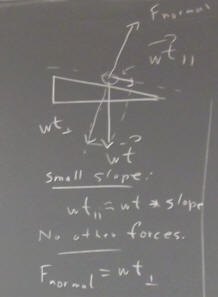 F normal
wt||
wt⊥
wt
Small slope:
wt|| = wt * slope
No other forces.
F normal = wt⊥